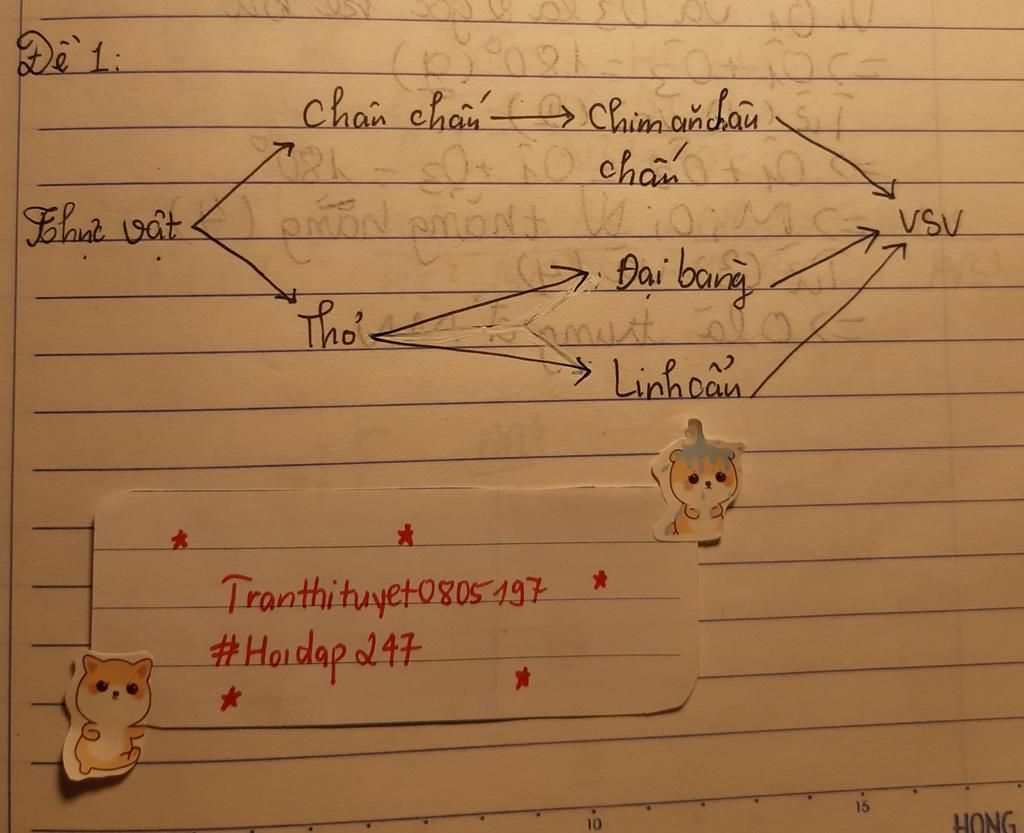 Đề 1:
Châu chấu → Chim ăn châu
chấu
Thực vật
VSV
Đại bàng
Thỏ
Linh cẩu
Tranthituyet0805197
#Hoidap247
10
15
HONG